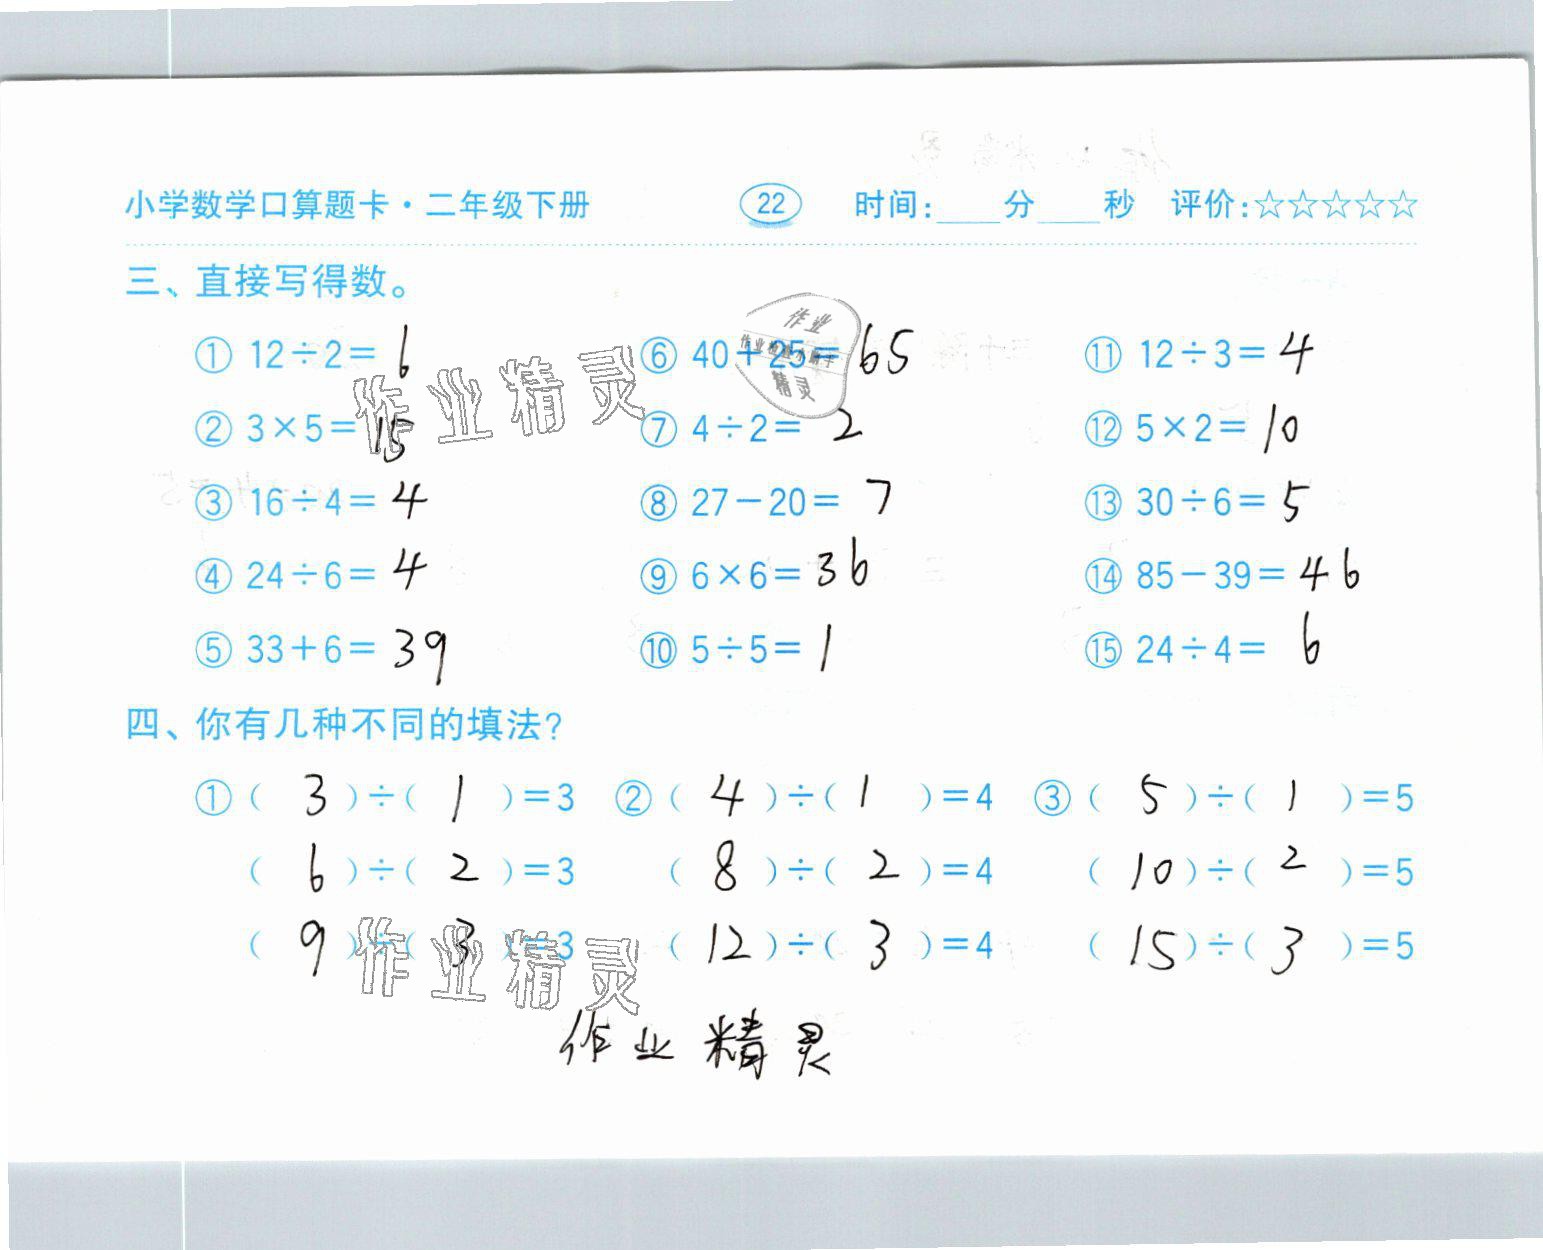 小学数学口算题卡·二年级下册 22 时间:____分____秒 评价:☆☆☆☆☆
三、直接写得数。
① 12÷2= 6 ⑥ 40+25= 65 ⑪ 12÷3= 4
② 3×5= 15 ⑦ 4÷2= 2 ⑫ 5×2= 10
③ 16÷4= 4 ⑧ 27-20= 7 ⑬ 30÷6= 5
④ 24÷6= 4 ⑨ 6×6= 36 ⑭ 85-39= 46
⑤ 33+6= 39 ⑩ 5÷5= 1 ⑮ 24÷4= 6
作业精灵
作业
作业检查小助手
精灵
四、你有几种不同的填法?
① ( 3 )÷( 1 )=3 ② ( 4 )÷( 1 )=4 ③ ( 5 )÷( 1 )=5
( 6 )÷( 2 )=3 ( 8 )÷( 2 )=4 ( 10 )÷( 2 )=5
( 9 )÷( 3 )=3 ( 12 )÷( 3 )=4 ( 15 )÷( 3 )=5
作业精灵
作业精灵